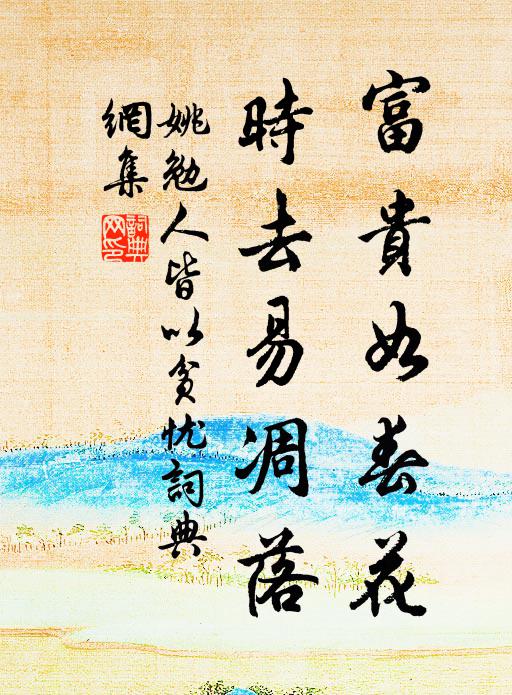 富貴如春花
時去易凋落
姚勉人皆以貪忧詞典
網集
詞典网印